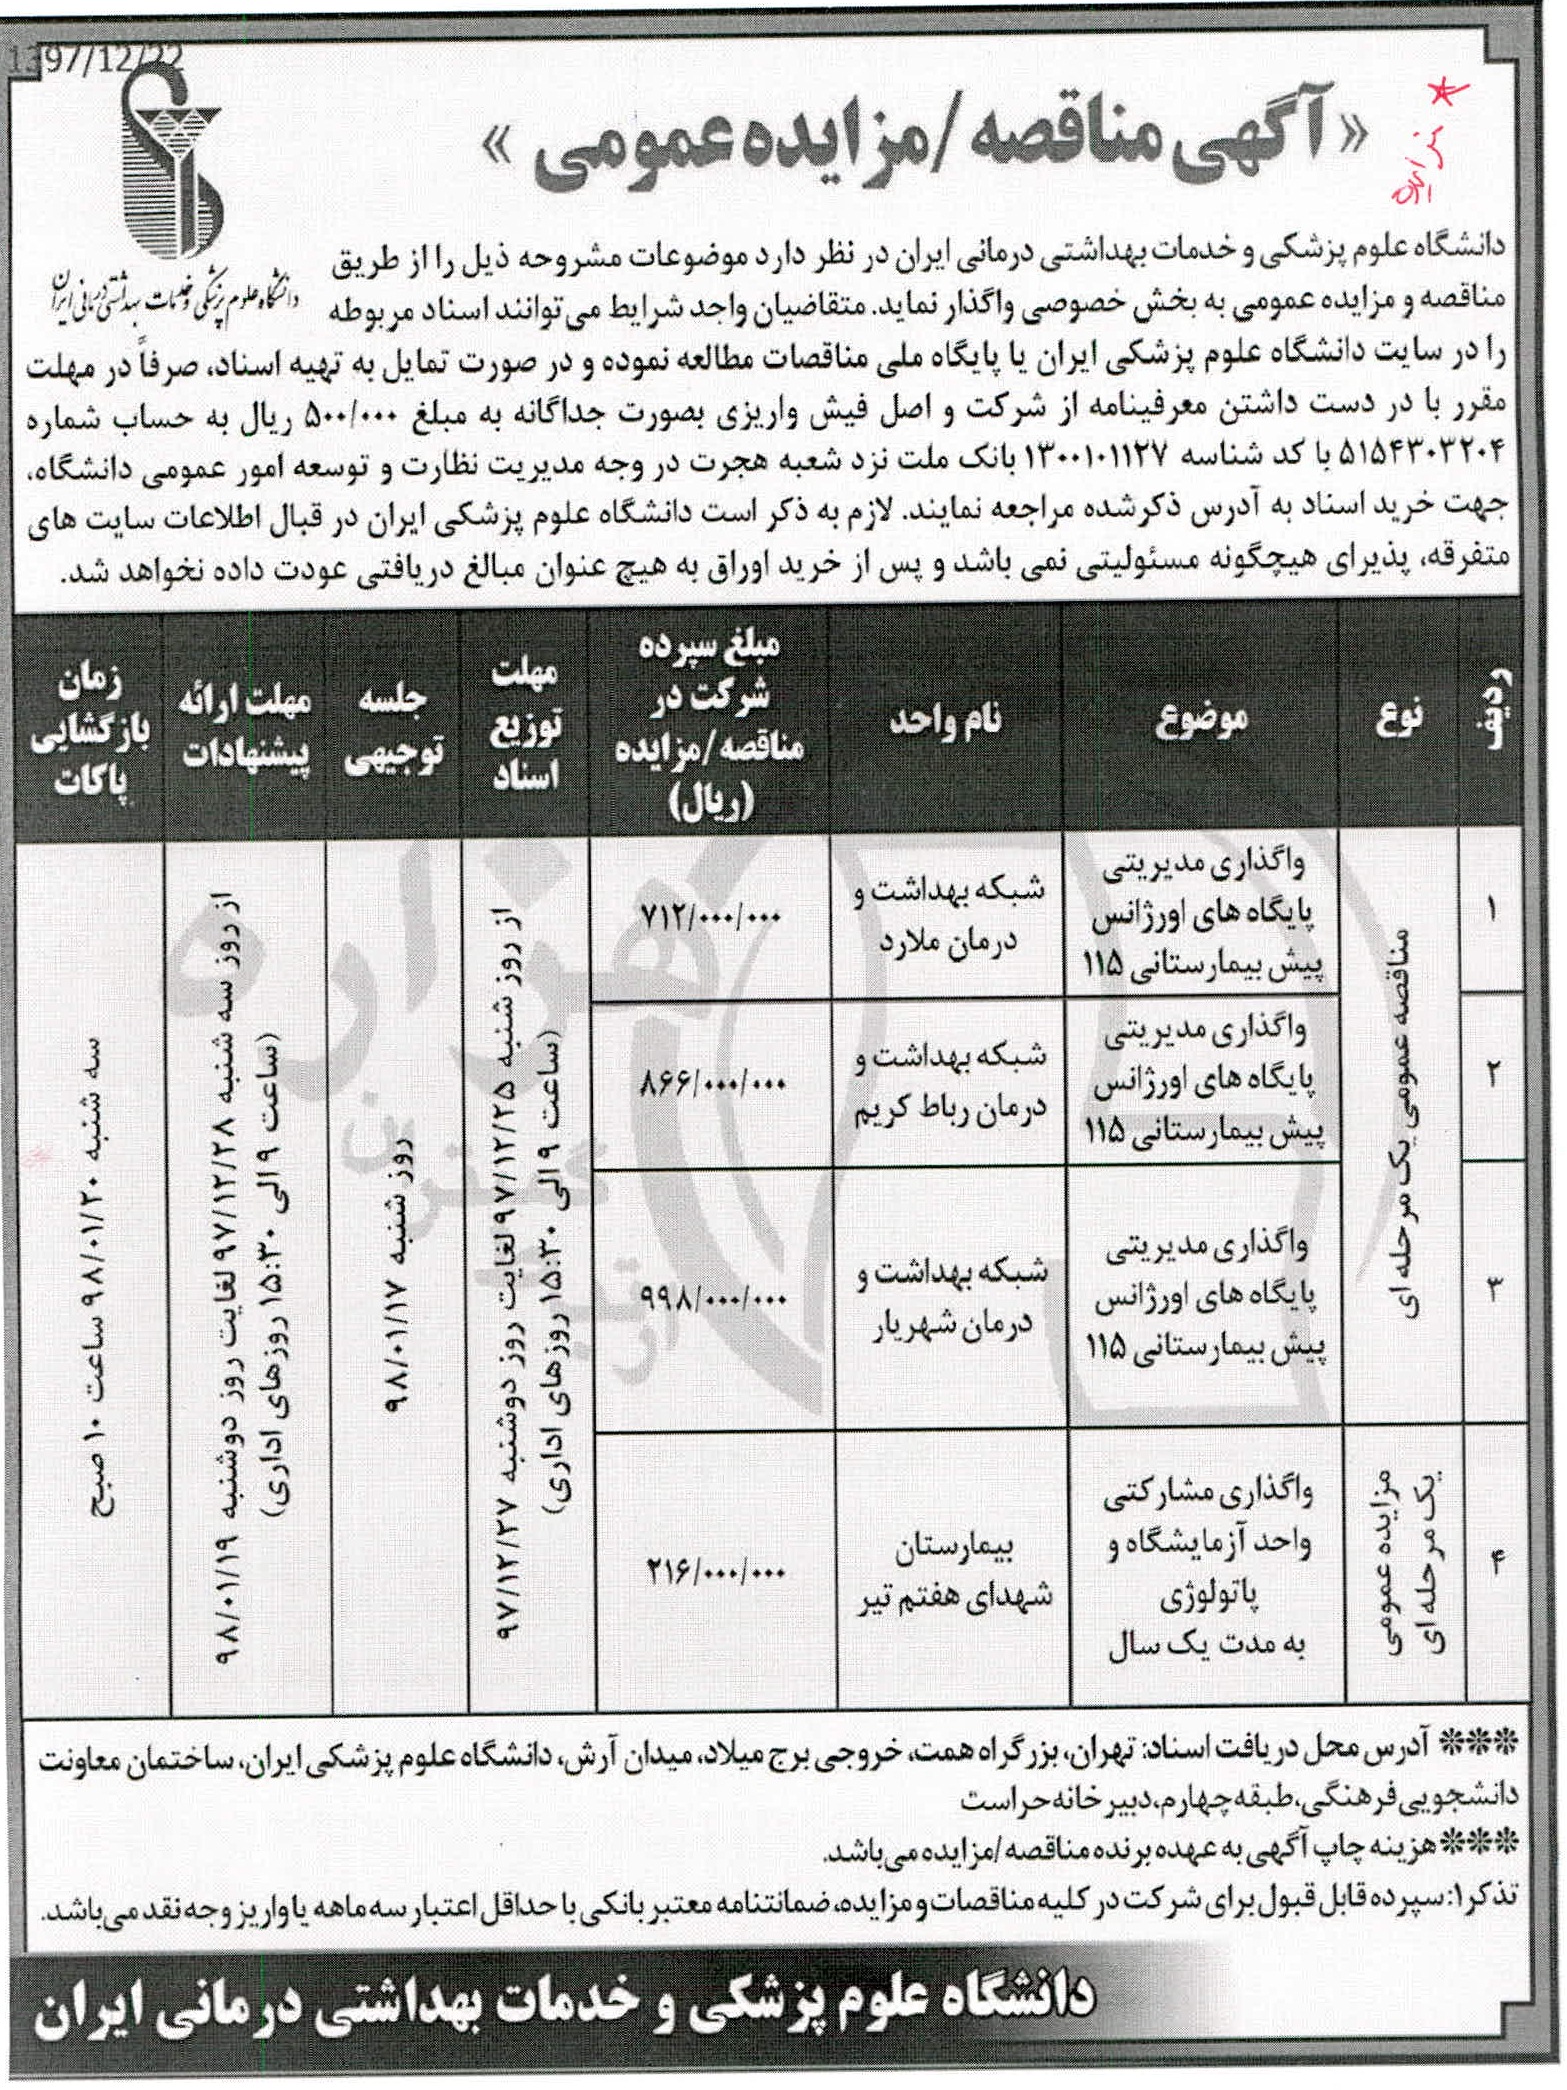 1397/12/22
« آگهی مناقصه/مزایده عمومی »
مزایده
دانشگاه علوم پزشکی و خدمات بهداشتی درمانی ایران
دانشگاه علوم پزشکی و خدمات بهداشتی درمانی ایران در نظر دارد موضوعات مشروحه ذیل را از طریق
مناقصه و مزایده عمومی به بخش خصوصی واگذار نماید. متقاضیان واجد شرایط می توانند اسناد مربوطه
را در سایت دانشگاه علوم پزشکی ایران یا پایگاه ملی مناقصات مطالعه نموده و در صورت تمایل به تهیه اسناد، صرفاً در مهلت
مقرر با در دست داشتن معرفینامه از شرکت و اصل فیش واریزی بصورت جداگانه به مبلغ ۵۰۰/۰۰۰ ریال به حساب شماره
۵۱۵۴۳۰۳۲۰۴ با کد شناسه ۱۳۰۰۱۰۱۱۲۷ بانک ملت نزد شعبه هجرت در وجه مدیریت نظارت و توسعه امور عمومی دانشگاه،
جهت خرید اسناد به آدرس ذکرشده مراجعه نمایند. لازم به ذکر است دانشگاه علوم پزشکی ایران در قبال اطلاعات سایت های
متفرقه، پذیرای هیچگونه مسئولیتی نمی باشد و پس از خرید اوراق به هیچ عنوان مبالغ دریافتی عودت داده نخواهد شد.
ردیف
نوع
موضوع
نام واحد
مبلغ سپرده
شرکت در
مناقصه/مزایده
(ریال)
مهلت
توزیع
اسناد
جلسه
توجیهی
مهلت ارائه
پیشنهادات
زمان
بازگشایی
پاکات
۱
مناقصه عمومی یک مرحله ای
واگذاری مدیریتی
پایگاه های اورژانس
پیش بیمارستانی ۱۱۵
شبکه بهداشت و
درمان ملارد
۷۱۲/۰۰۰/۰۰۰
از روز شنبه ۹۷/۱۲/۲۵ لغایت روز دوشنبه ۹۷/۱۲/۲۷
(ساعت ۹ الی ۱۵:۳۰ روزهای اداری)
روز شنبه ۹۸/۰۱/۱۷
از روز سه شنبه ۹۷/۱۲/۲۸ لغایت روز دوشنبه ۹۸/۰۱/۱۹
(ساعت ۹ الی ۱۵:۳۰ روزهای اداری)
سه شنبه ۹۸/۰۱/۲۰ ساعت ۱۰ صبح
۲
واگذاری مدیریتی
پایگاه های اورژانس
پیش بیمارستانی ۱۱۵
شبکه بهداشت و
درمان رباط کریم
۸۶۶/۰۰۰/۰۰۰
۳
واگذاری مدیریتی
پایگاه های اورژانس
پیش بیمارستانی ۱۱۵
شبکه بهداشت و
درمان شهریار
۹۹۸/۰۰۰/۰۰۰
۴
مزایده عمومی
یک مرحله ای
واگذاری مشارکتی
واحد آزمایشگاه و
پاتولوژی
به مدت یک سال
بیمارستان
شهدای هفتم تیر
۲۱۶/۰۰۰/۰۰۰
هزاره
*** آدرس محل دریافت اسناد: تهران، بزرگراه همت، خروجی برج میلاد، میدان آرش، دانشگاه علوم پزشکی ایران، ساختمان معاونت
دانشجویی فرهنگی، طبقه چهارم، دبیرخانه حراست
*** هزینه چاپ آگهی به عهده برنده مناقصه/مزایده می باشد.
تذکر۱: سپرده قابل قبول برای شرکت در کلیه مناقصات و مزایده، ضمانتنامه معتبر بانکی با حداقل اعتبار سه ماهه یا واریز وجه نقد می باشد.
دانشگاه علوم پزشکی و خدمات بهداشتی درمانی ایران